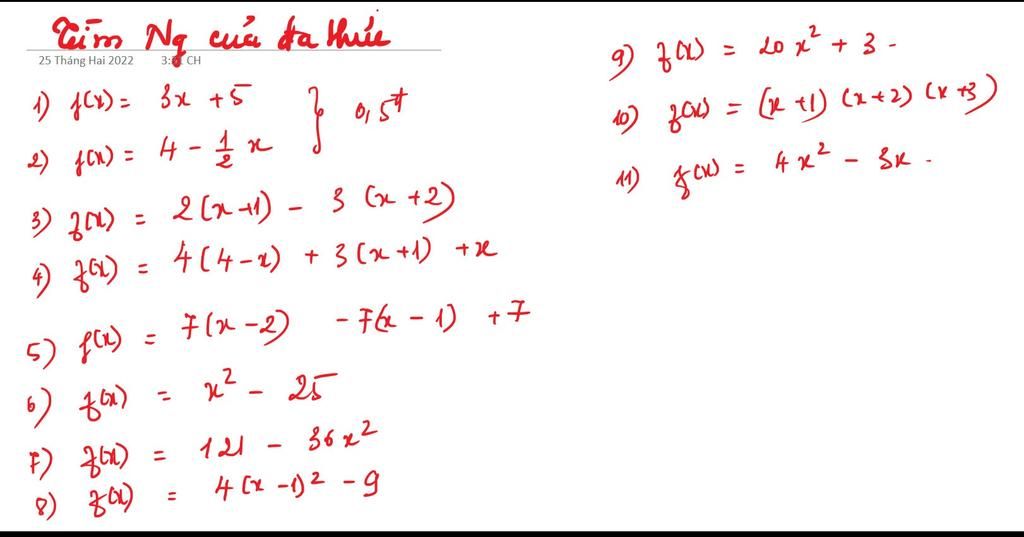 Tìm Ng của đa thức
25 Tháng Hai 2022 CH
1) f(x) = 3x + 5
2) f(x) = 4 - 1/2 x
} 0,5đ
3) f(x) = 2(x+1) - 3(x+2)
4) f(x) = 4(4-x) + 3(x+1) + x
5) f(x) = 7(x-2) - 7(x-1) + 7
6) f(x) = x² - 25
7) f(x) = 121 - 36x²
8) f(x) = 4(x-1)² - 9
9) f(x) = 20x² + 3.
10) f(x) = (x+1)(x+2)(x+3)
11) f(x) = 4x² - 3x.